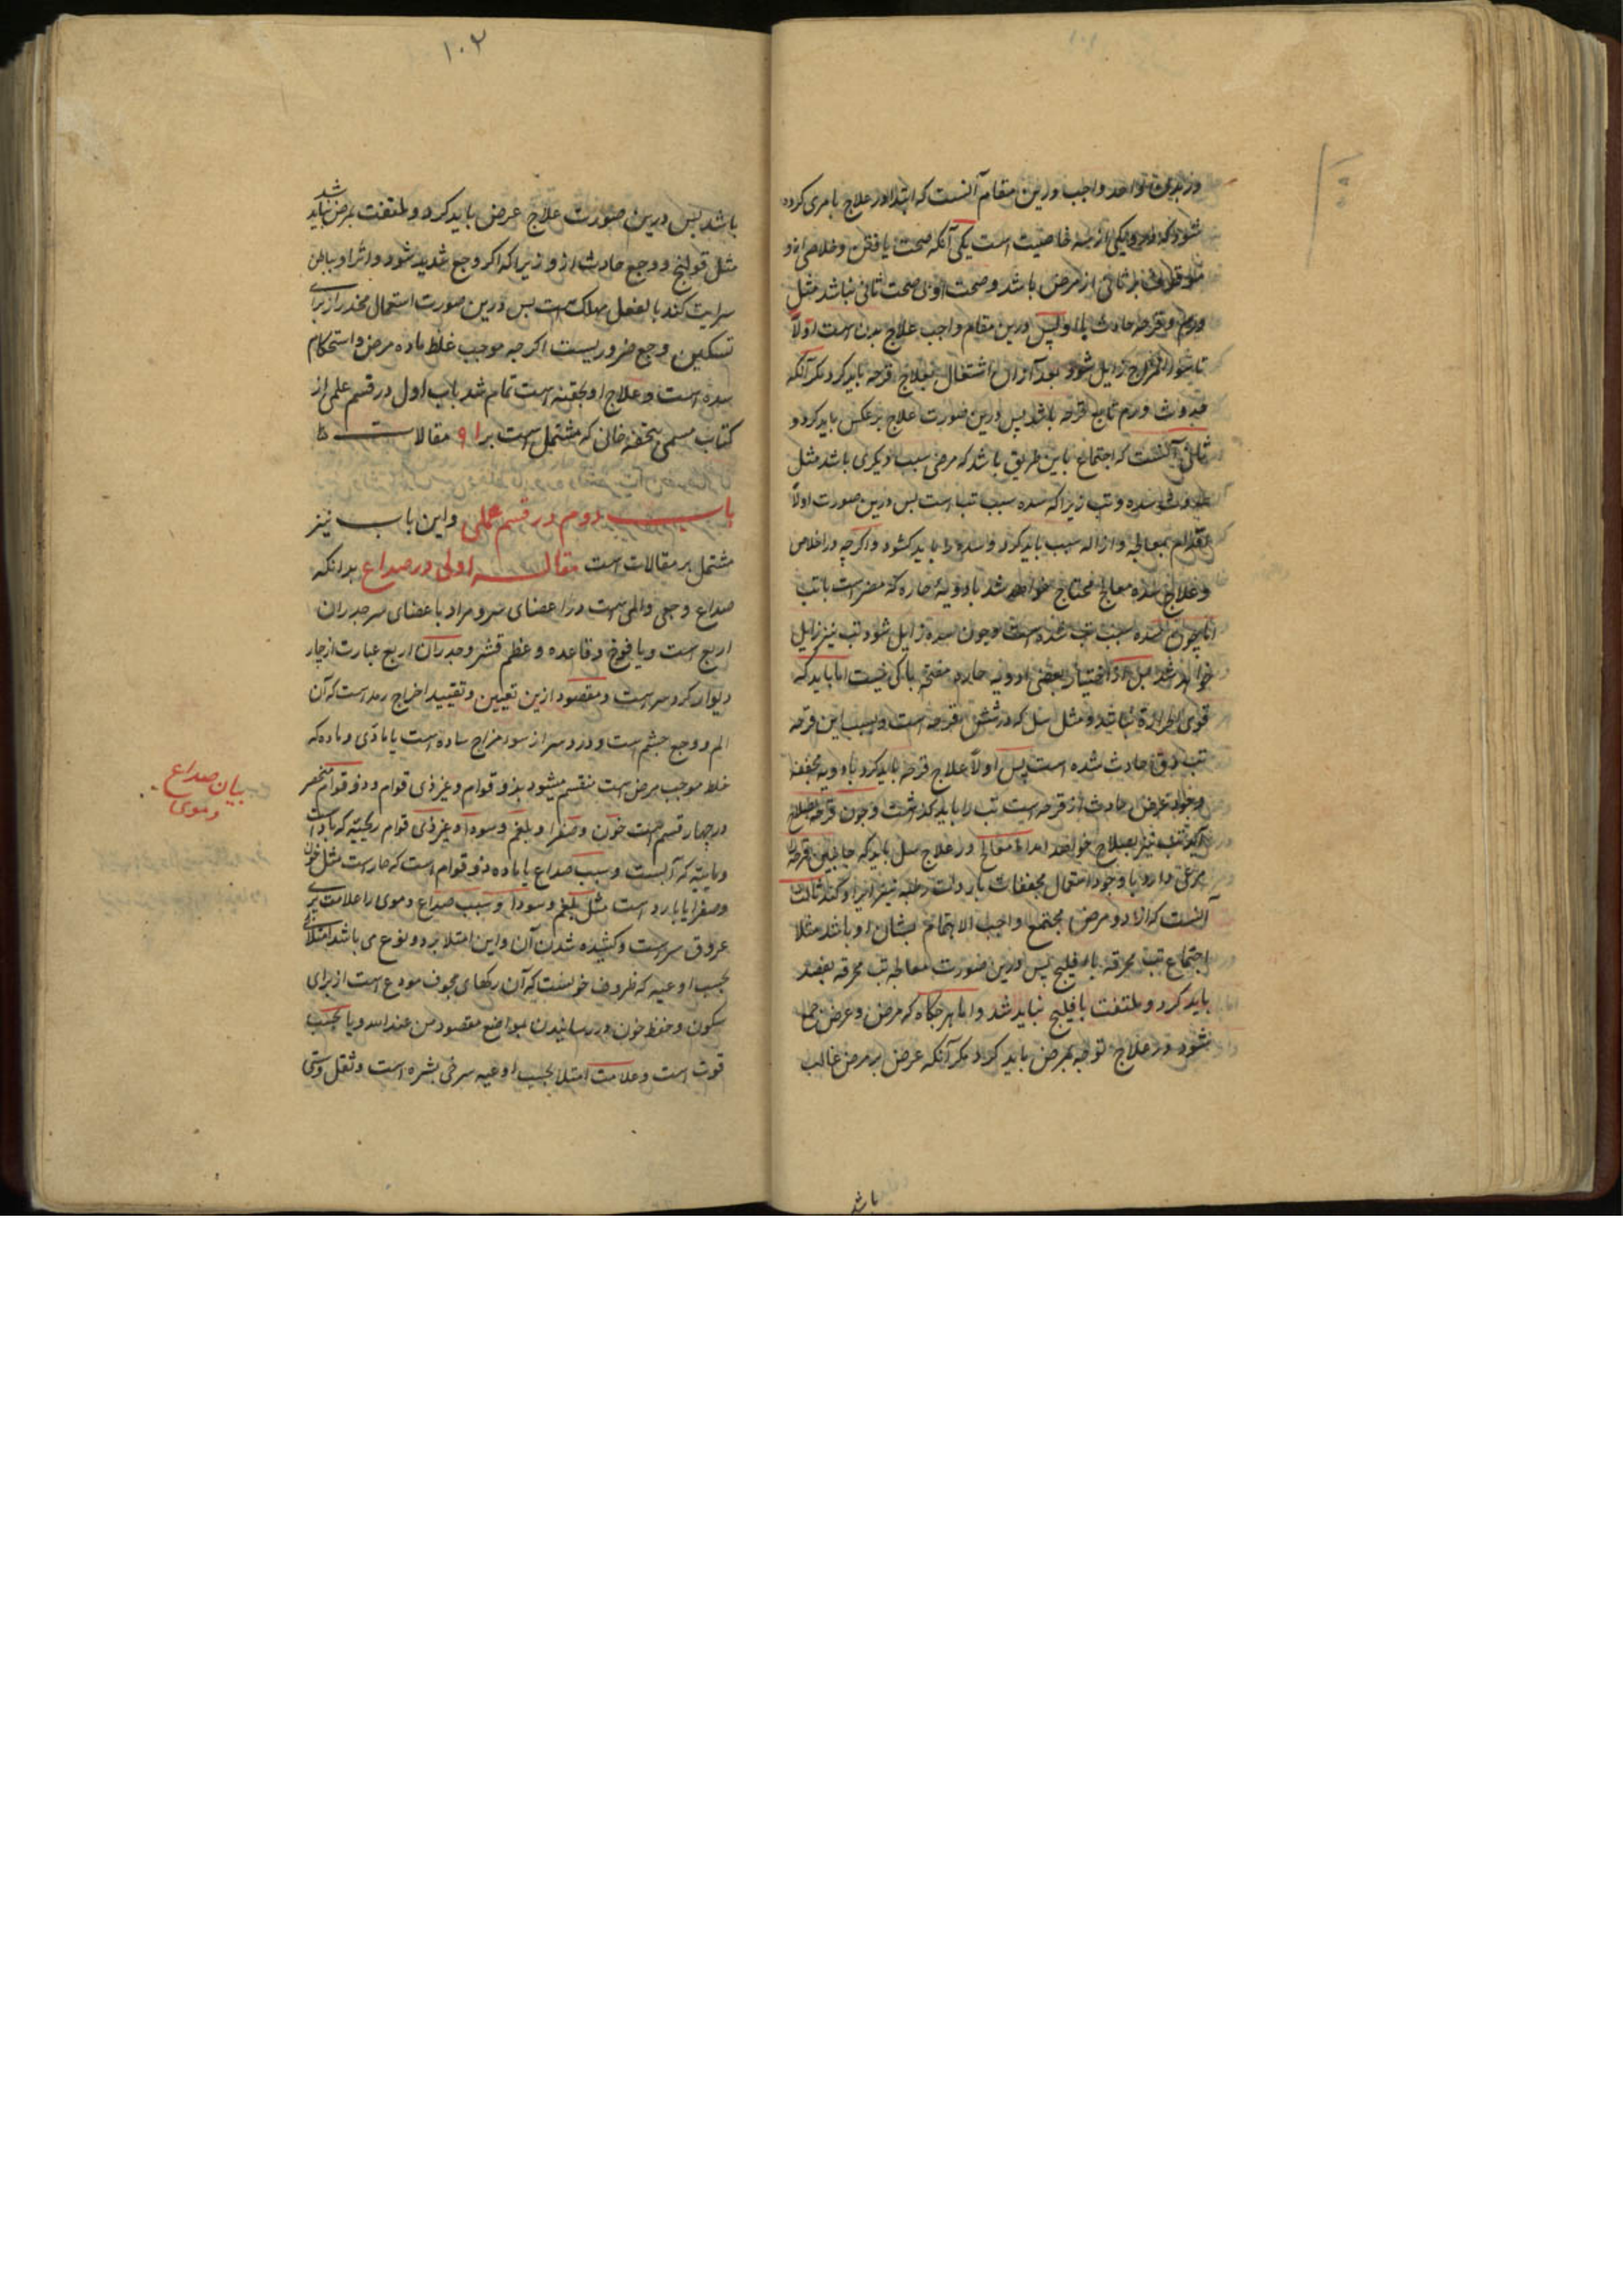 واجب درین مقام آنست که ابتدا در علاج بامری کرده
شود که درو یکی از سه خاصیت است یکی آنکه صحت یافتن و خلاصی ازو
ثانی از مرض باشد و صحت اولی صحت ثانی نباشد مثل
ورم و قرحه حادث پس درین مقام واجب علاج است اولاً
تا سوء المزاج زایل شود بعد از آن اشتغال بعلاج قرحه باید کرد مکر آنکه
ورم تابع قرحه باشد پس درین صورت علاج برعکس باید کرد و
ثانی آنست که اجتماع باین طریق باشد که مرضی سبب دیکری باشد مثل
سده و تب زیرا که سده سبب تب است بس درین صورت اولاً
بمعالجه و ازاله سبب باید کرد و سده را باید کشود و اکرچه در اخلاص
و علاج سده معالج محتاج خواهد شد بادویهٔ حاره که مضر است با تب
اما چون سده سبب تب شده است و چون سده زایل شود تب نیز زایل
خواهد شد بعضی ادویه حاره مفتحه باکی نیست اما باید که
قوی الحرارة نباشد و مثل سل که در شش قرحه است و بسبب این قرحه
تب دق حادث شده است پس اولاً علاج قرحه باید کرد بادویه مجففه
حادث از قرحه است تب را باید کذاشت و چون قرحه
تب نیز بصلاح خواهد آمد در علاج سل باید که جانبین قرحه
مرعی دارد با وجود استعمال مجففات باردات رطبه نیز ایراد کند ثالث
آنست که از دو مرض مجتمع واجب الاهتمام بشان او باشد مثلا
اجتماع تب محرقه با فیلج پس درین صورت معالجه تب محرقه بفصد
باید کرد و ملتفت با فیلج نباید شد و اما هرجکاه که مرض و عرض جمع
شود در علاج توجه بمرض باید کرد مکر آنکه عرض بر مرض غالب
باشد
١٠٢
باشد بس درین صورت علاج عرض باید کرد و ملتفت بمرض نباید شد
مثل قولنج و وجع حادث ازو زیرا که اکر وجع شدید شود و اثر او بباطن
سرایت کند بالفعل مهلک است بس درین صورت استعمال مخدر از برای
تسکین وجع ضروریست اکرچه موجب غلظ ماده مرض و استحکام
سده است و علاج او بحقنه است تمام شد باب اول در قسم علمی از
کتاب مسمی بتحفه خانی که مشتمل است بر ١٩ مقالات
باب دوم در قسم عملی و این باب نیز
مشتمل بر مقالات است مقاله اولی در صداع بدانکه
صداع وجعی و المی است در اعضای سر و مراد باعضای سر جدران
اربع است و یافوخ و قاعده و عظم قشر و جدران اربع عبارت از چار
دیوار کرد سر است و مقصود ازین تعیین و تقیید اخراج رمد است که آن
الم و وجع چشم است و درد سر از سوء مزاج ساده است یا مادی و ماده که
خلط موجب مرض است منقسم میشود بذو قوام و غیر ذی قوام و ذو قوام منحصر
در چهار قسم است خون و صفرا و بلغم و سودا و غیر ذی قوام ریحیه که باد است
و مائیه که آبست و سبب صداع یا ماده ذو قوام است که حار است مثل خون
و صفرا یا بارد است مثل بلغم و سودا و سبب صداع دموی را علامت پری
عروق سر است و کشیده شدن آن و این امتلا بر دو نوع می باشد امتلای
بحسب اوعیه که ظروف خونست که آن رکهای مجوف مودع است از برای
سکون و حفظ خون و در رسانیدن بمواضع مقصود من عند الله و یا بحسب
قوت است و علامت امتلا بحسب اوعیه سرخی بشره است و ثقل و
بیان صداع
دموی